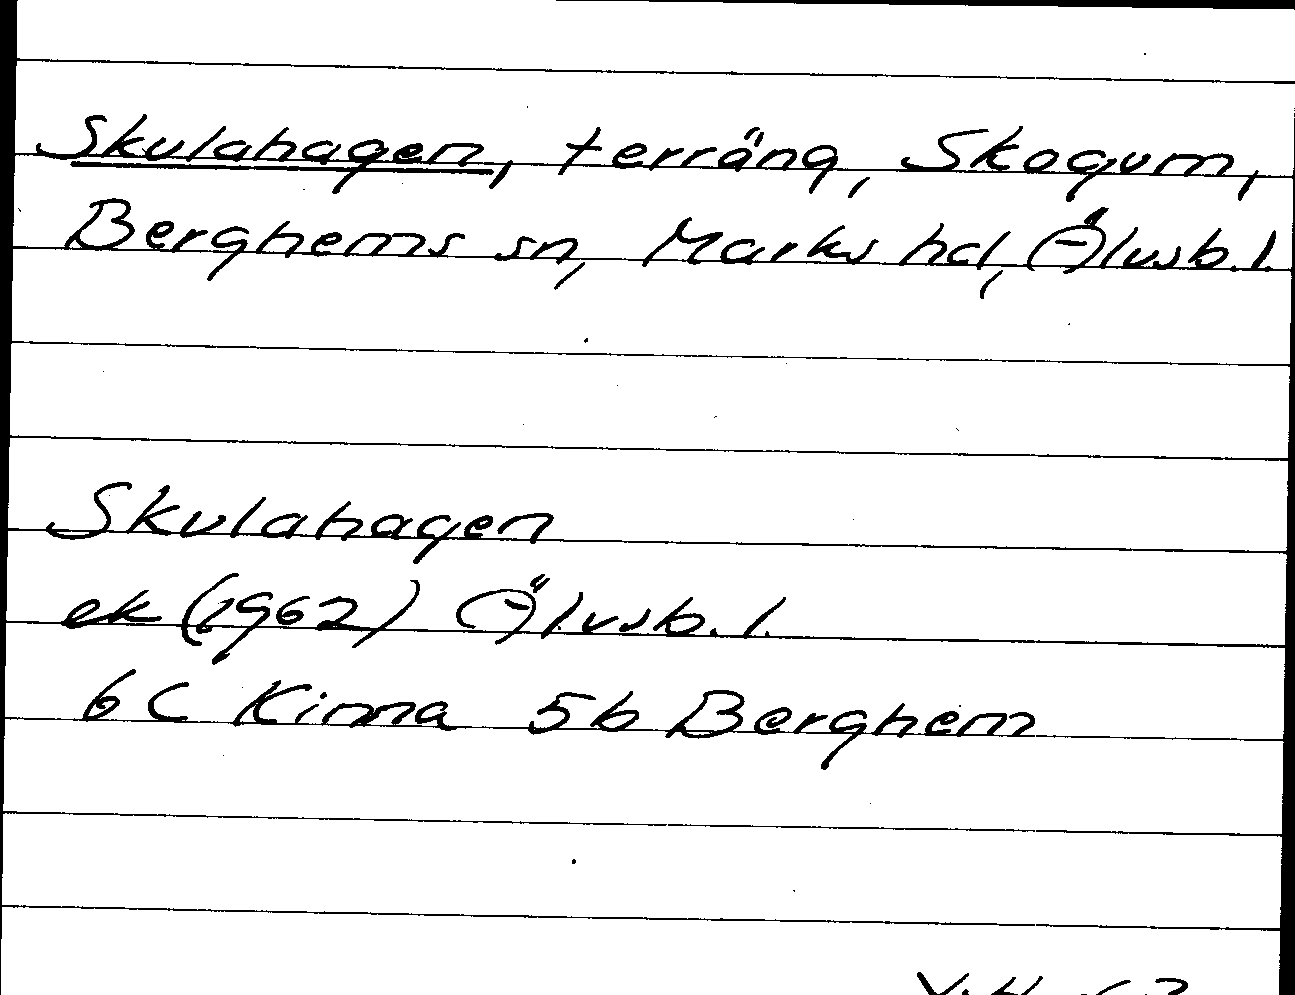 Skulahagen, terräng, Skogum,
Berghems sn, Marks hd, Älvsb. l.
Skulahagen
ek (1962) Älvsb. l.
6 C Kinna 5b Berghem